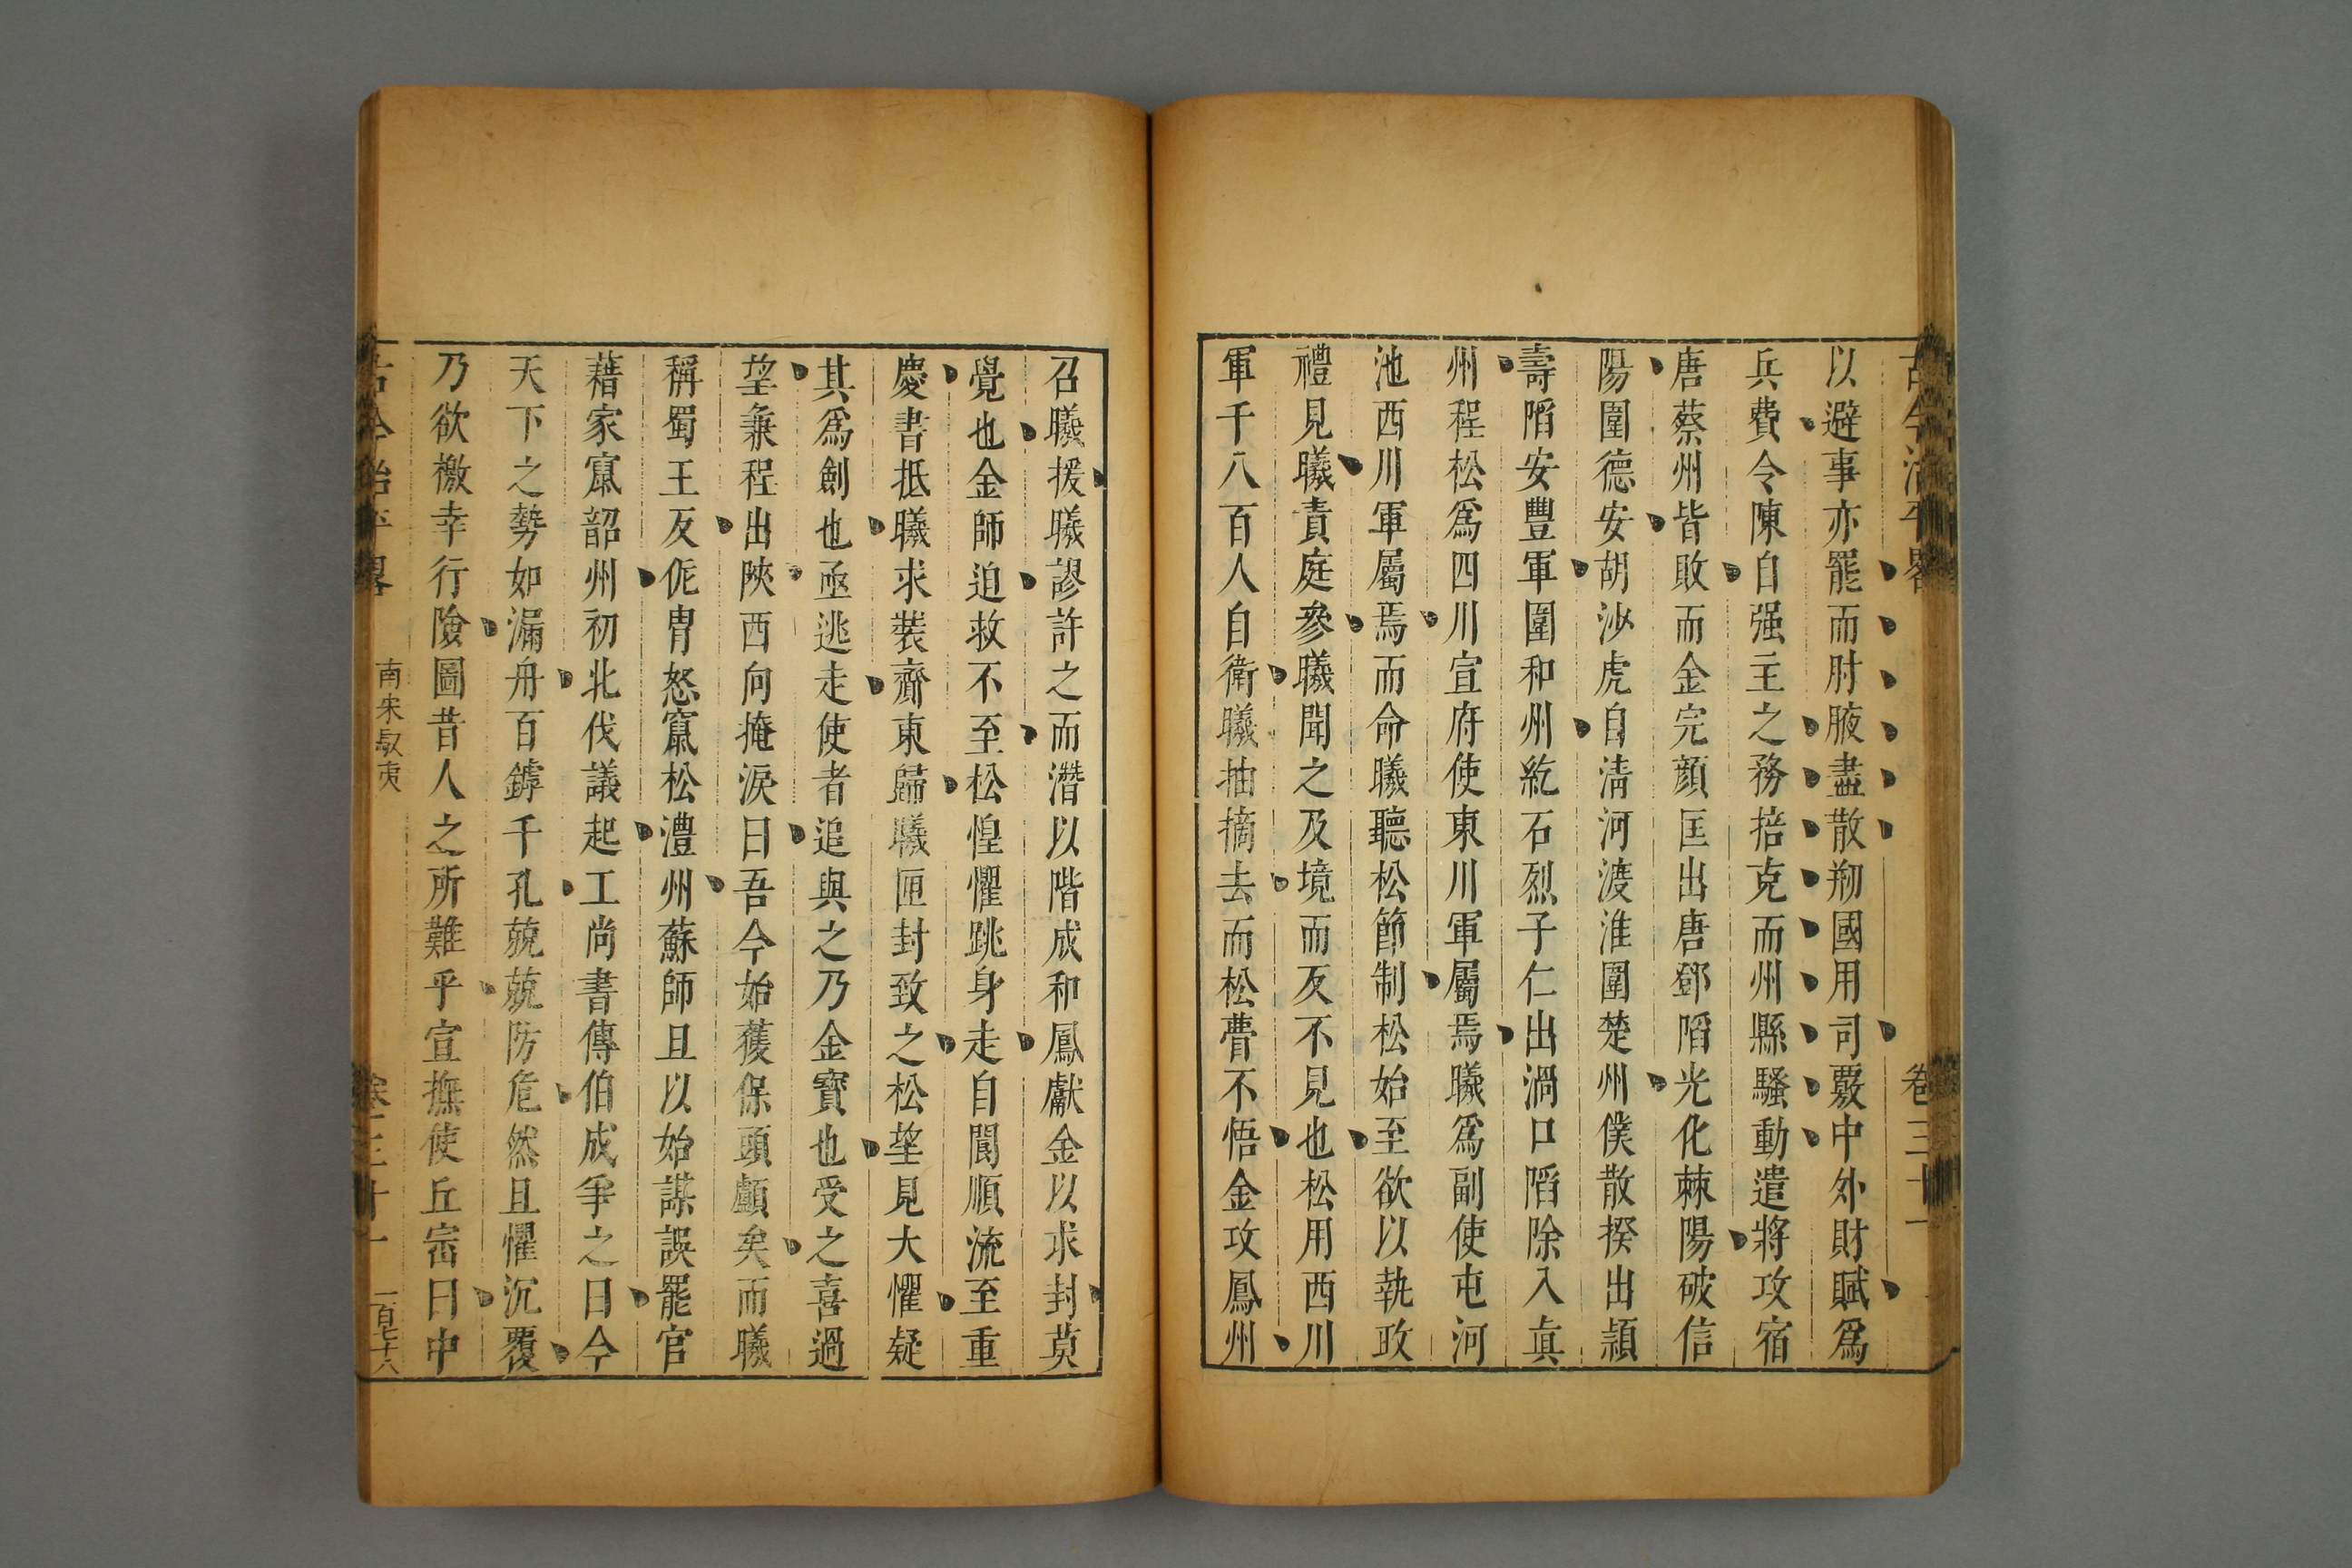 古今治平畧
卷三十一
以避事亦罷而肘腋盡散剏國用司覈中外財賦爲
兵費令陳自强主之務掊克而州縣騷動遣將攻宿
唐蔡州皆敗而金完顏匡出唐鄧陷光化棘陽破信
陽圍德安胡沙虎自淸河渡淮圍楚州僕散揆出潁
壽陷安豐軍圍和州紇石烈子仁出渦口陷除入眞
州程松爲四川宣府使東川軍屬焉曦爲副使屯河
池西川軍屬焉而命曦聽松節制松始至欲以執政
禮見曦責庭參曦聞之及境而反不見也松用西川
軍千八百人自衛曦抽摘去而松瞢不悟金攻鳳州
召曦援曦謬許之而潛以階成和鳳獻金以求封莫
覺也金師迫救不至松惶懼跳身走自閬順流至重
慶書抵曦求裝齎東歸曦匣封致之松望見大懼疑
其爲劍也亟逃走使者追與之乃金寶也受之喜過
望兼程出陝西向掩淚曰吾今始獲保頭顱矣而曦
稱蜀王反侂胄怒竄松澧州蘇師旦以始謀誤罷官
藉家竄韶州初北伐議起工尚書傳伯成爭之曰今
天下之勢如漏舟百罅千孔兢兢防危然且懼沉覆
乃欲檄幸行險圖昔人之所難乎宣撫使丘崈曰中
古今治平畧
南宋馭夷
卷三十一
一百七十六